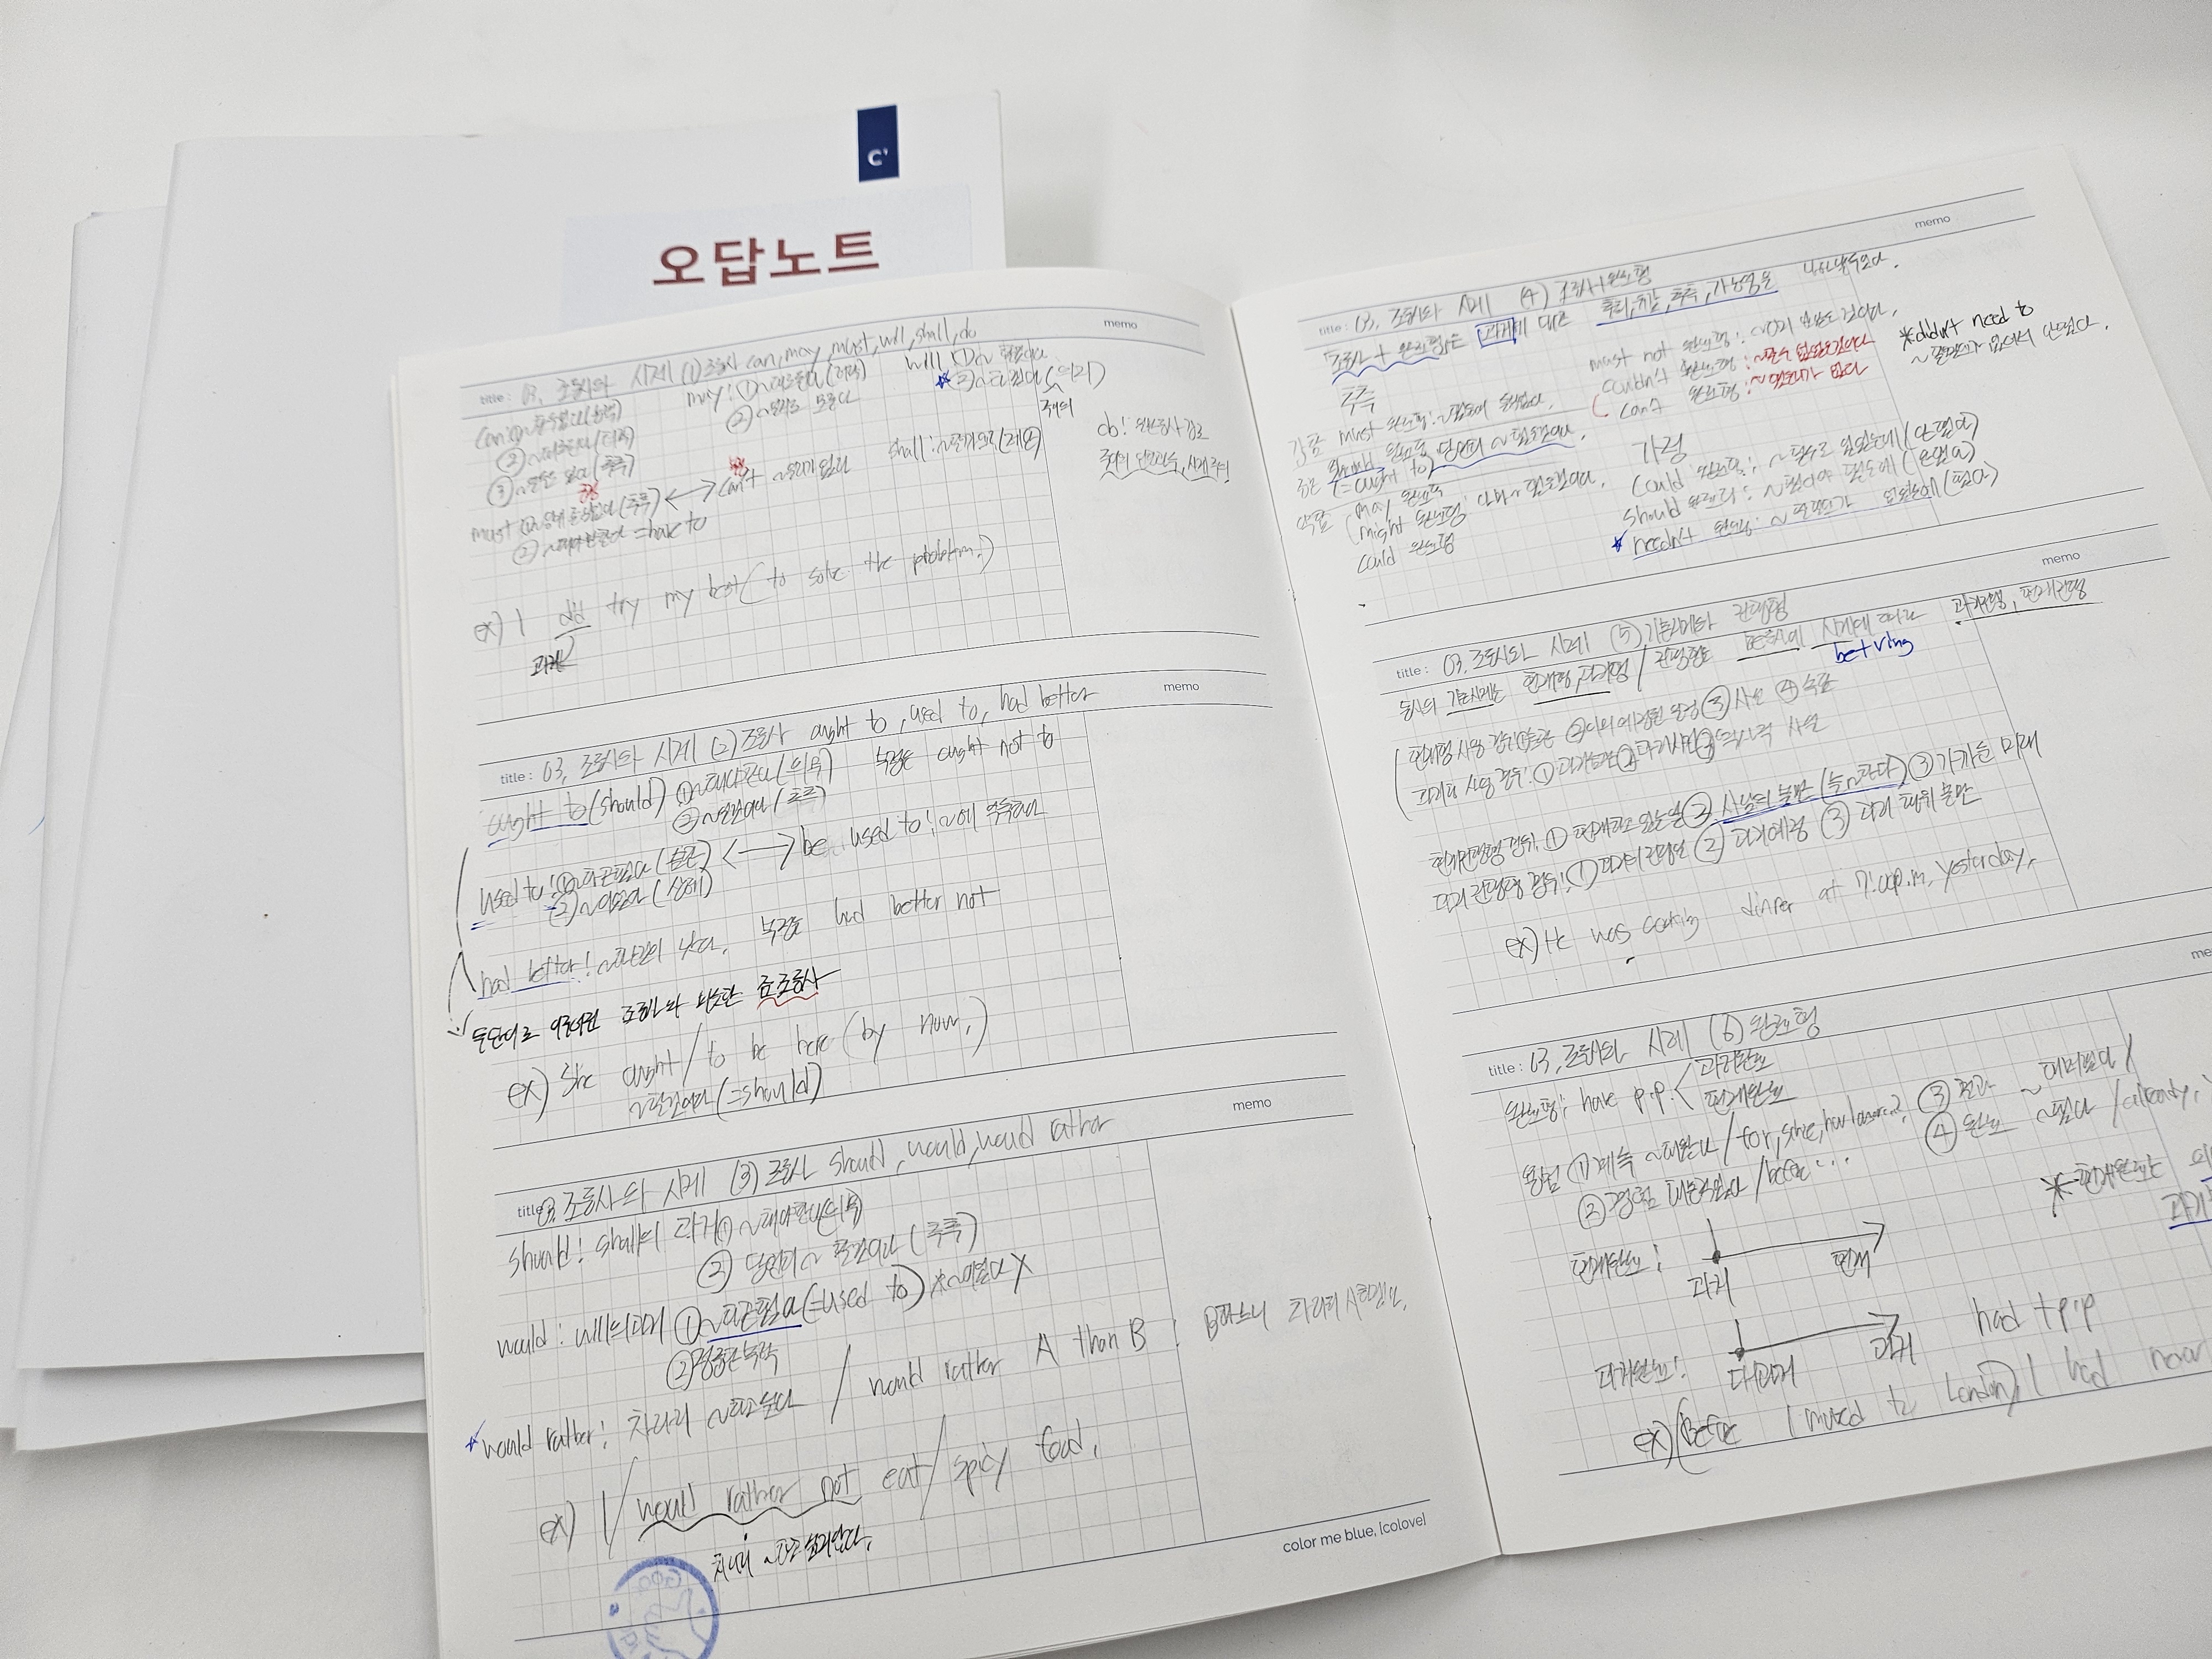 C'
오답노트
title : 03. 조동사와 시제 (1) 조동사 can, may, must, will, shall, do
memo
can: ①~할 수 있다(능력)
②~해도 된다(허락)
③ (추측)
may: ①~해도 된다(허락)
②~일지도 모른다
will ①~할 것이다
(의지)
주어의
must ① (추측) ↔ can't ~일 리가 없다
② ~해야 한다 = have to
shall: (제안)
do: 일반동사 강조
ex) I did try my best (to solve the problem.)
과거
title : 03. 조동사와 시제 (2) 조동사 ought to, used to, had better
memo
ought to(should) ①~해야 한다(의무) 부정은 ought not to
②~일 것이다(추측)
used to: ①~하곤 했다(습관) ↔ be used to: ~에 익숙하다
②~이었다(상태)
had better: ~하는 편이 낫다. 부정은 had better not
두 단어로 이루어진 조동사와 비슷한 준조동사
ex) She ought / to be here (by now.)
~할 것이다(=should)
title : 03. 조동사와 시제 (3) 조동사 should, would, would rather
memo
should: shall의 과거 ①~해야 한다(의무)
② 당연히 ~ 할 것이다 (추측)
would: will의 과거 ①~하곤 했다(=used to) *~이었다 X
②정중한 부탁
would rather: 차라리 ~하고 싶다 / would rather A than B : B하느니 차라리 A하겠다.
ex) I / would rather not eat / spicy food.
차라리 ~하고 싶지 않다.
color me blue, [colove]
title : 03. 조동사와 시제 (4) 조동사+완료형
memo
조동사 + 완료형은 과거에 대한 후회, 유감, 추측, 가능성을 나타낸다.
추측
강한 must 완료형: ~했음에 틀림없다.
should 완료형 당연히 ~했을 것이다.
(=ought to)
약한 may 완료형
might 완료형: 아마 ~했을 것이다.
could 완료형
must not 완료형:
couldn't 완료형: ~했을 리가 없다
can't 완료형:
*didn't need to
~할 필요가 없어서 안 했다.
가정
could 완료형: ~할 수도 있었는데(안 했다)
should 완료형: ~했어야 했는데(안 했다)
needn't 완료형: ~할 필요가 없었는데(했다)
title : 03. 조동사와 시제 (5) 기본시제와 진행형
memo
동사의 기본시제는 현재형, 과거형 / 진행형은 be동사의 시제에 따라 과거진행, 현재진행
be+ving
현재형 사용 경우: ①습관 ③사실 ④속담
과거형 사용 경우: ①과거습관 ②과거사건 ③역사적 사실
현재진행형 경우: ①현재하고 있는 일 ②사람의 불만(늘 ~한다) ③가까운 미래
과거진행형 경우: ①과거의 진행 ②과거예정 ③과거 행위 불만
ex) He was cooking dinner at 7:00p.m. yesterday.
title : 03. 조동사와 시제 (6) 완료형
완료형: have p.p. < 과거완료
현재완료
용법 ①계속 ~해왔다 / for, since, how long...?
②경험 해본 적 있다 / before...
③결과 ~해버렸다 /
④완료 ~했다 / already,
*현재완료는
현재완료: 과거 현재
과거완료: 대과거 과거 had + p.p
ex) (Before I moved to London,) I had never